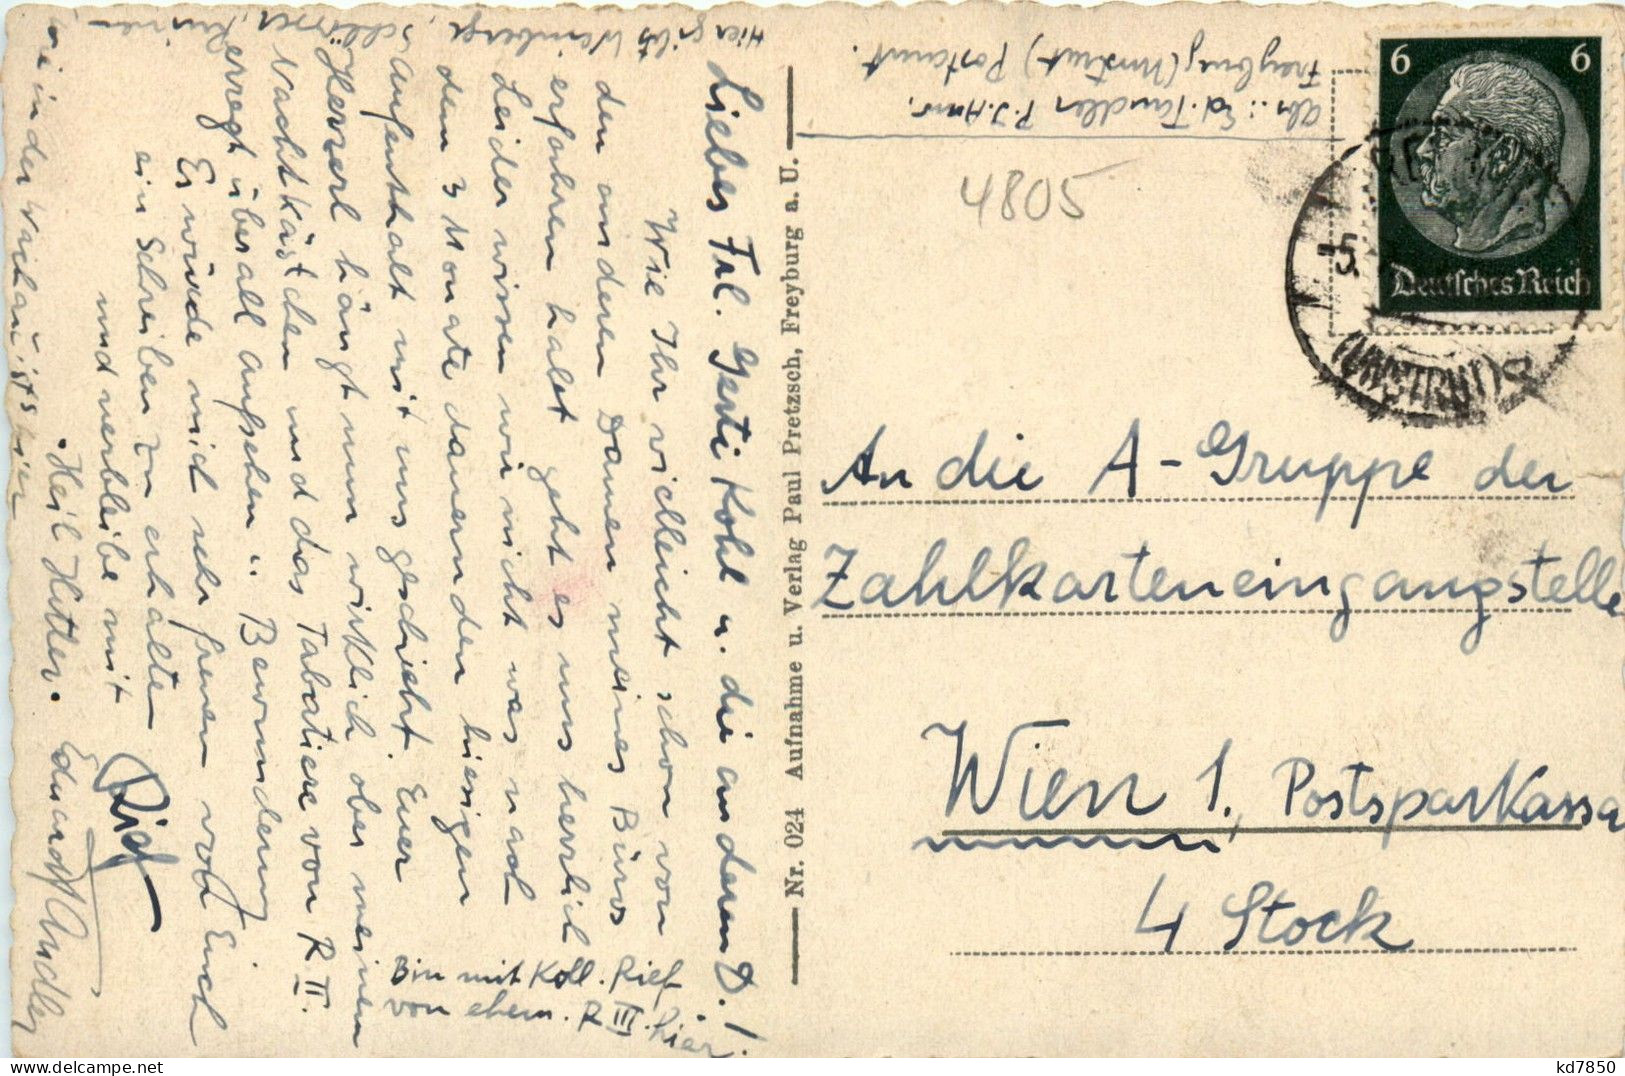 Hier gibts Weinberge, Schlösser, Ruinen
wie in der Wachau ists hier
Liebes Frl. Gerti Kohl u. die anderen D.!
Wie Ihr vielleicht schon von
den anderen Damen meines Büros
erfahren habet geht es uns herrlich
Leider wissen wir nicht was nach
dem 3 Monate dauernden hiesigen
Aufenthalt mit uns geschieht. Euer
Herzerl hängt nun wirklich ober meinem
Nachtkästchen und das Tabatiere von R II.
erregt überall Aufsehen u. Bewunderung.
Es würde mich sehr freuen von Euch
ein Schreiben zu erhalten
und verbleibe mit
Heil Hitler. Eduard Tandler
Rief
Bin mit Koll. Rief
von ehem. R III. hier
Nr. 024 Aufnahme u. Verlag Paul Pretzsch, Freyburg a. U.
Abs.: Ed. Tandler P. J.
Freyburg (Unstrut) Postamt
4805
6 6
Deutsches Reich
5.
(UNSTRUT)
An die A-Gruppe der
Zahlkarteneingangstelle
Wien 1., Postsparkassa
4 Stock
kd7850